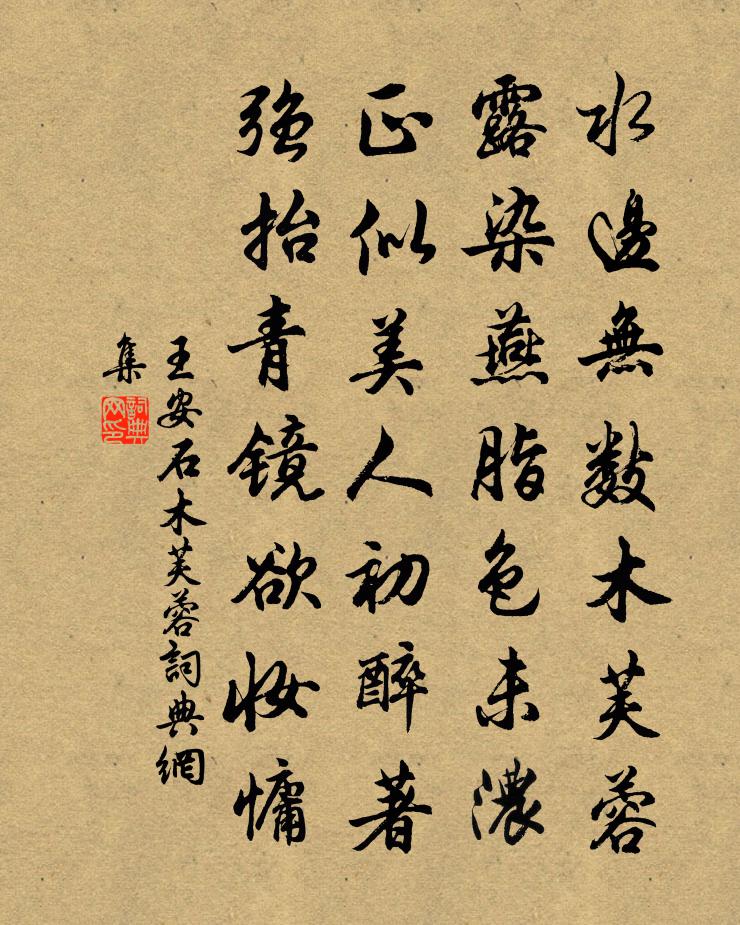 水邊無數木芙蓉
露染燕脂色未濃
正似美人初醉著
強抬青鏡欲妝慵
王安石木芙蓉詞典網
集
詞典
网印